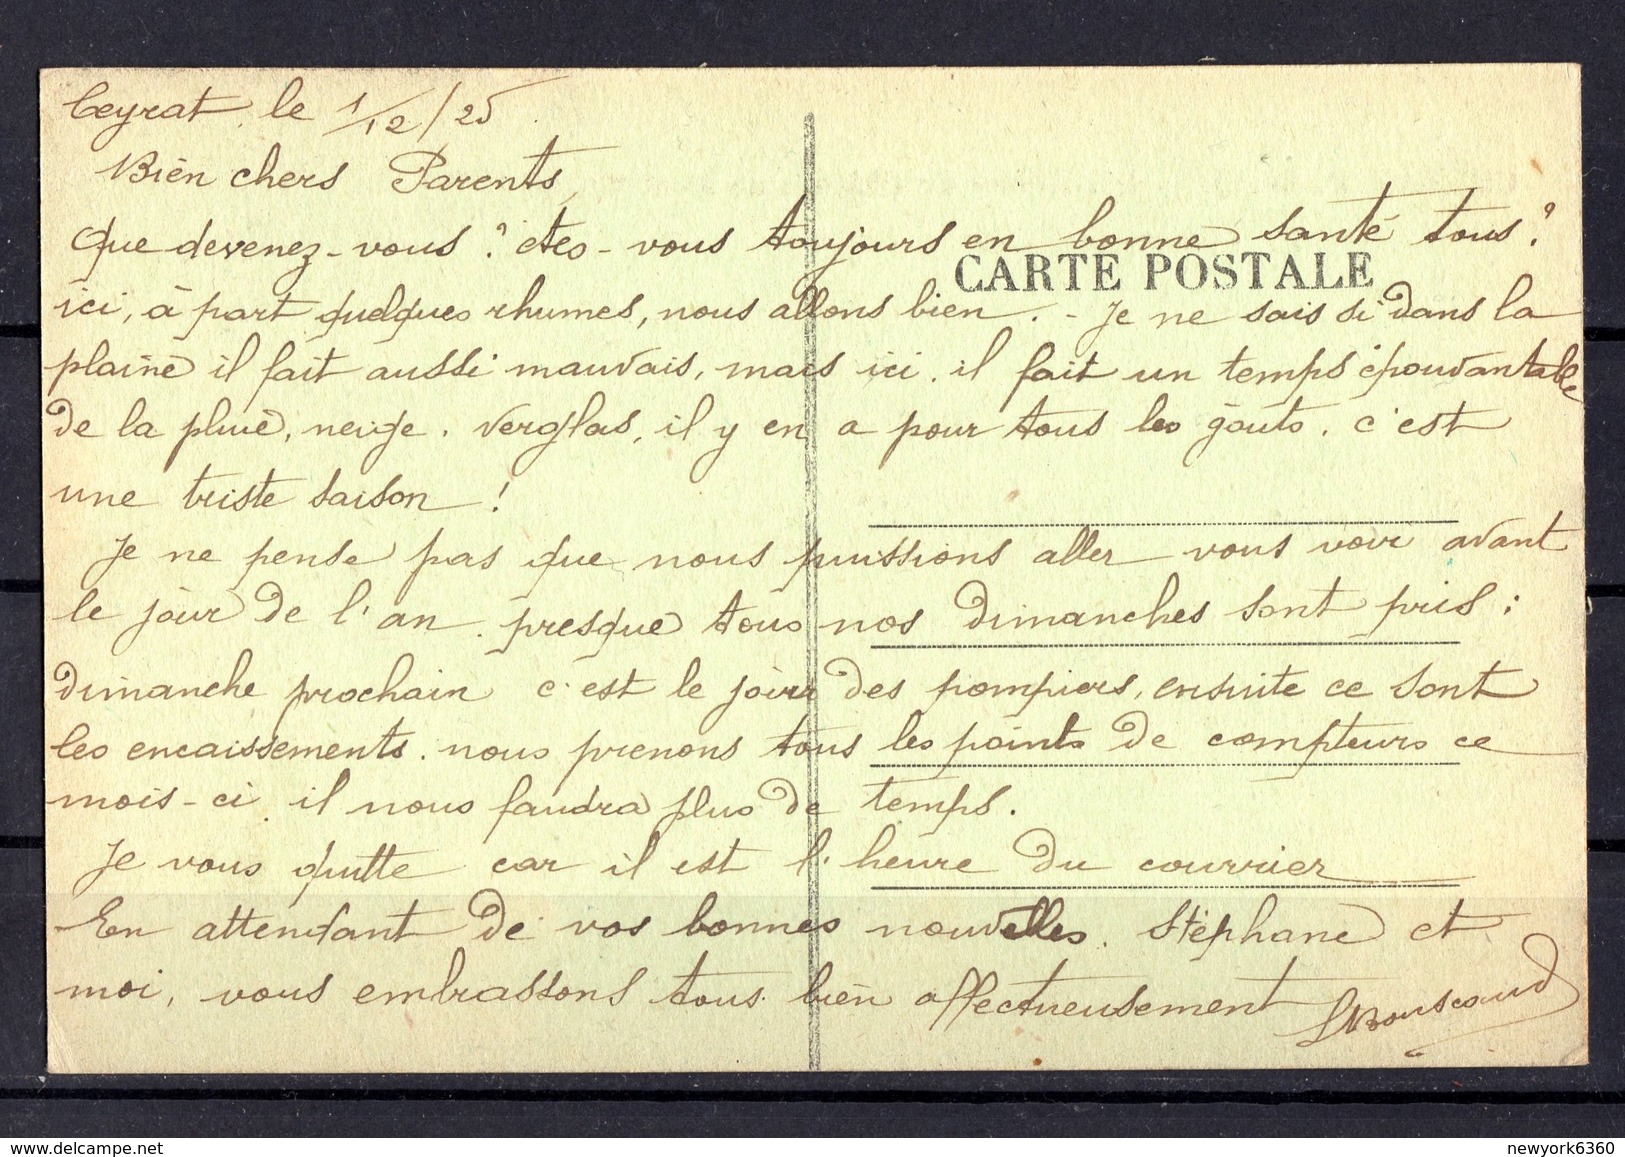 Ceyrat le 1/12/25
Bien chers Parents,
Que devenez-vous ? êtes-vous toujours en bonne santé tous ?
CARTE POSTALE
ici, à part quelques rhumes, nous allons bien. - Je ne sais si dans la
plaine il fait aussi mauvais, mais ici il fait un temps épouvantable
de la pluie, neige, verglas, il y en a pour tous les goûts. c'est
une triste saison !
Je ne pense pas que nous puissions aller vous voir avant
le jour de l'an. presque tous nos dimanches sont pris ;
dimanche prochain c'est le jour des pompiers, ensuite ce sont
les encaissements. nous prenons tous les points de compteurs ce
mois-ci il nous faudra plus de temps.
Je vous quitte car il est l'heure du courrier
En attendant de vos bonnes nouvelles. Stéphane et
moi, vous embrassons tous bien affectueusement
delcampe.net
newyork6360